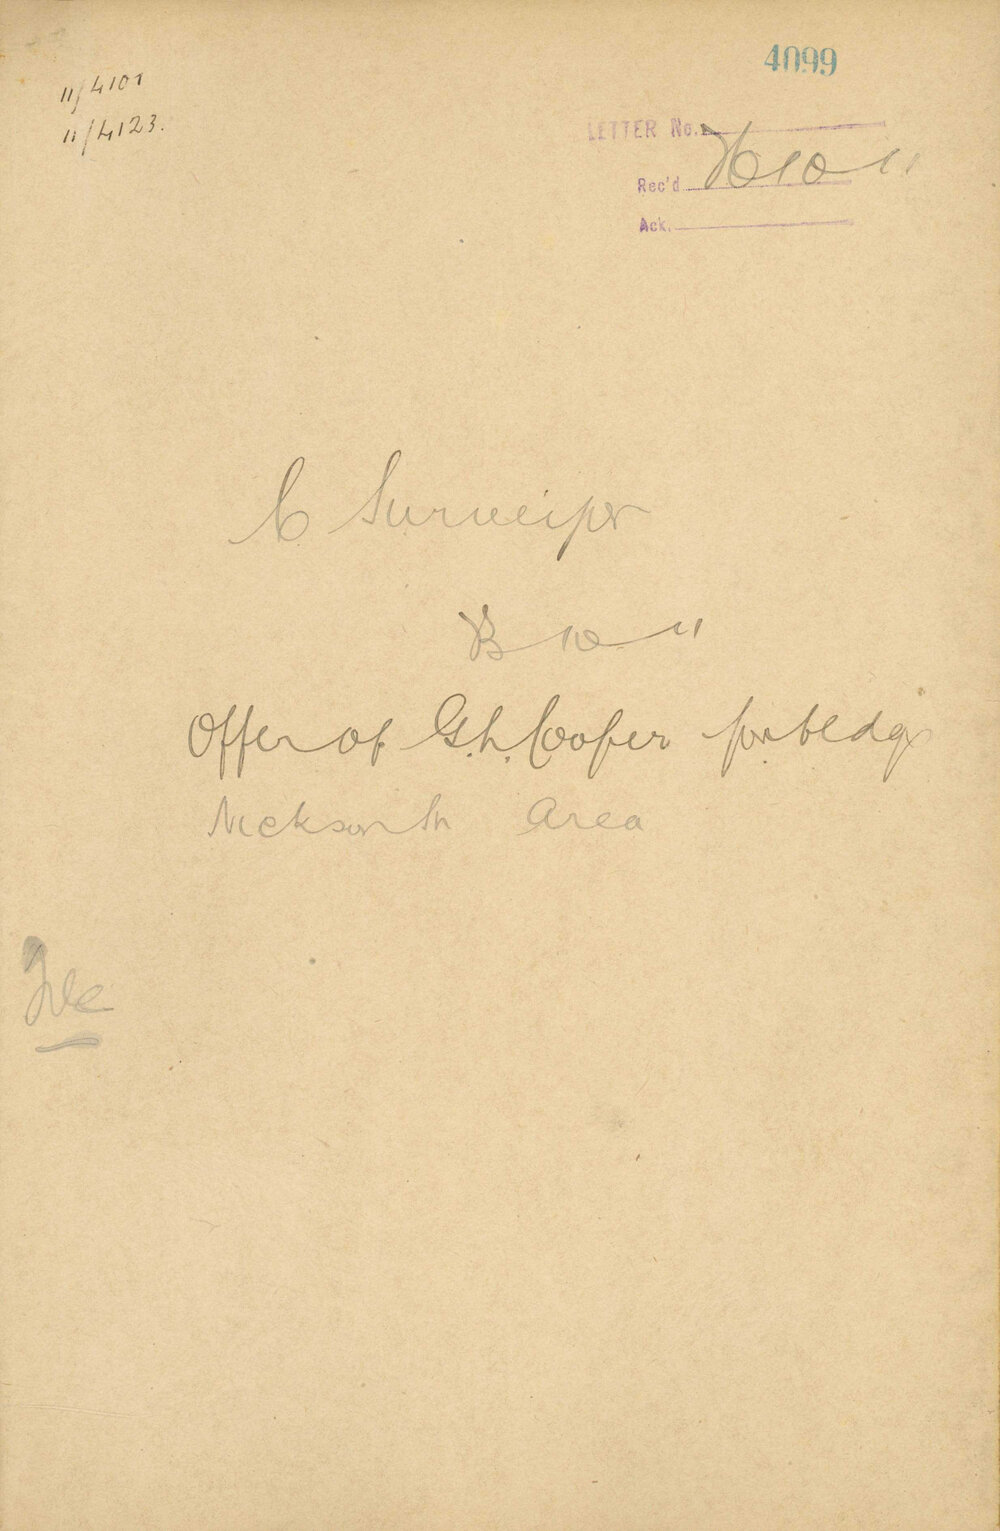 4099
11/4101
11/4123.
LETTER No.
Rec'd 10 11
Ack.
C Surveyor
10 11
Offer of G.h. Cooper for bldgs
Area
File